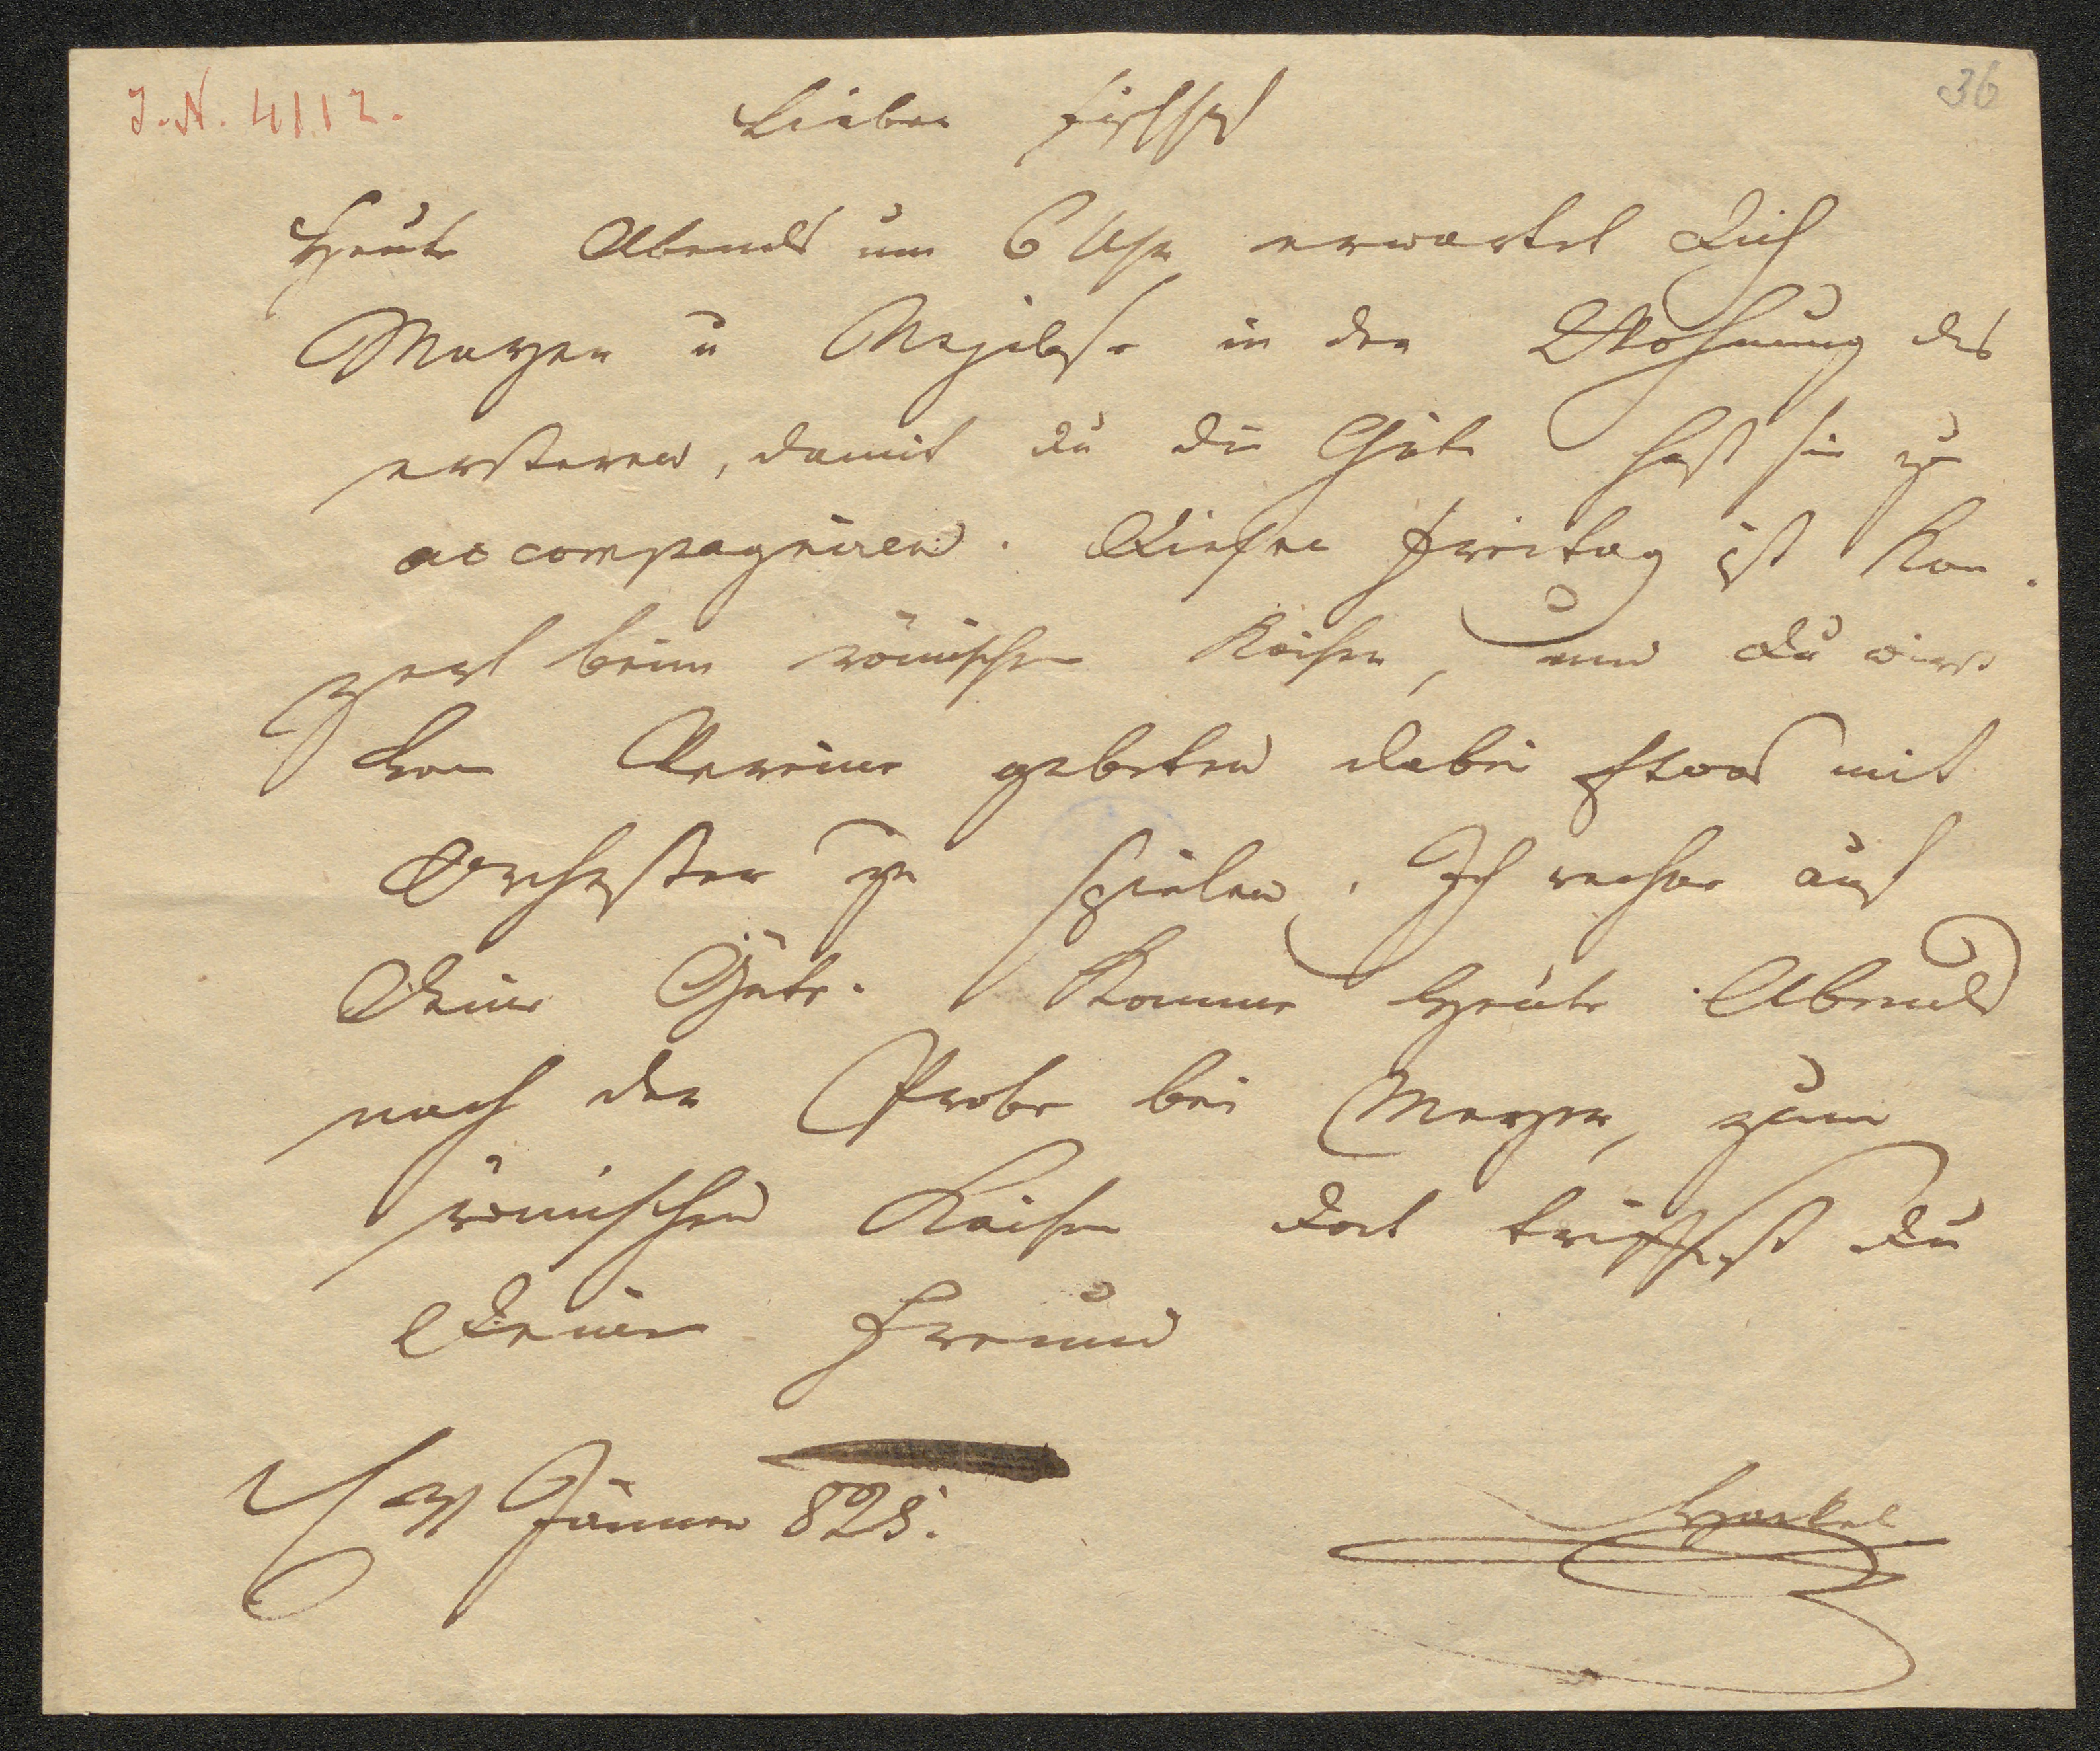 J.N. 4112.
36
Lieber Fischhof
Heute Abends um 6 Uhr erwartet Dich
Mayer u in der Wohnung des
ersteren, damit du die Güte hast sie zu
accompagniren. Diesen Freitag ist Kon-
zert beim römischen Kaiser, und du wirst
vom Vereine gebeten dabei Etwas mit
Orchester zu spielen. Ich rechne auf
Deine Güte. Komme heute Abends
nach der Probe bei Mayer, zum
römischen Kaiser dort triffst du
Deinen Freund
Jänner 828.
Hackel